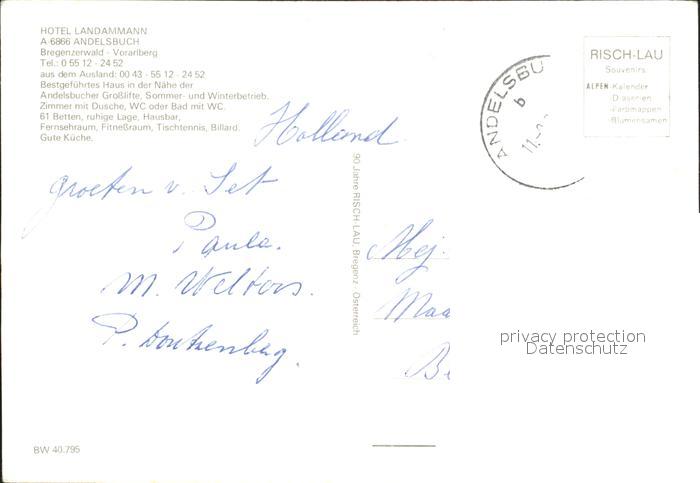 HOTEL LANDAMMANN
A-6866 ANDELSBUCH
Bregenzerwald - Vorarlberg
Tel.: 0 55 12 - 24 52
aus dem Ausland: 00 43 - 55 12 - 24 52
Bestgeführtes Haus in der Nähe der
Andelsbucher Großlifte, Sommer- und Winterbetrieb.
Zimmer mit Dusche, WC oder Bad mit WC.
61 Betten, ruhige Lage, Hausbar,
Fernsehraum, Fitneßraum, Tischtennis, Billard.
Gute Küche.
Holland
groeten v. Jet
Paula.
M.
P. Doutzenberg.
BW 40.795
90 Jahre RISCH-LAU, Bregenz - Österreich
ANDELSBU
b
RISCH-LAU
Souvenirs
ALPEN-Kalender
-Diaserien
-Farbmappen
-Blumensamen
Mej.
Maa
privacy protection
Datenschutz